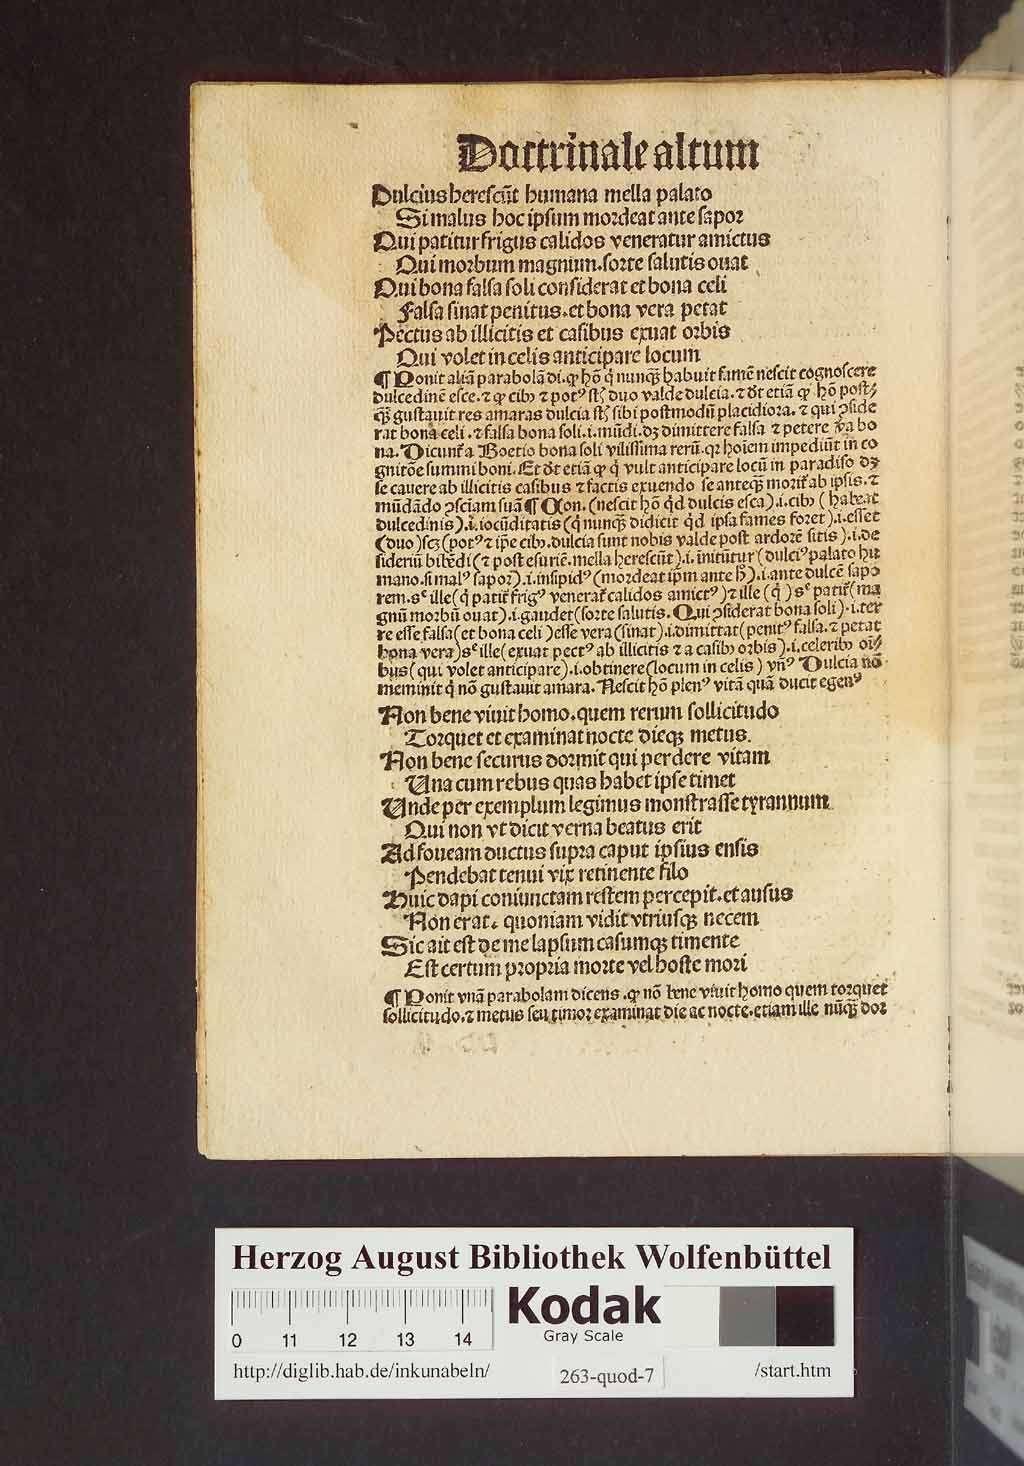 Doctrinale altum
Dulcius herescūt humana mella palato
Si malus hoc ipsum mordeat ante sapor
Qui patitur frigus calidos veneratur amictus
Qui morbum magnum.sorte salutis ouat
Qui bona falsa soli considerat et bona celi
Falsa sinat penitus.et bona vera petat
Pectus ab illicitis et casibus exuat orbis
Qui volet in celis anticipare locum
¶ Ponit aliā parabolā di. ꝙ hō q̇ nunqȝ habuit famē nescit cognoscere
dulcedinē esce. ⁊ ꝙ cibꝰ ⁊ potꝰ st̄ duo valde dulcia. ⁊ dt̄ etiā ꝙ hō post⸗
qȝ gustauit res amaras dulcia st̄ sibi postmodū placidiora. ⁊ qui ↄside
rat bona celi .⁊ falsa bona soli .i. mūdi. dȝ dimittere falsa ⁊ petere v̄a bo
na. Dicunt᷑ a Boetio bona soli vilissima rerū. qꝛ hoīem impediūt in co
gnitōe summi boni. Et dt̄ etiā ꝙ q̇ vult anticipare locū in paradiso dȝ
se cauere ab illicitis casibus ⁊ factis exuendo se anteqȝ morit᷑ ab ipsis. ⁊
mūdādo ↄsciam suā ¶ Con. (nescit hō q̇d dulcis esca) .i. cibꝰ (habeat
dulcedinis) .i. iocūditatis (q̇ nunqȝ didicit q̇d ipsa fames foret) .i. esset
(duo) scȝ (potꝰ ⁊ ip̄e cibꝰ. dulcia sunt nobis valde post ardorē sitis) .i. de
sideriū bibēdi (⁊ post esuriē. mella herescūt) .i. īnitūtur (dulciꝰ palato hu
mano. si malꝰ sapor) .i. insipidꝰ (mordeat ip̄m ante h̄) .i. ante dulcē sapo
rem. sᶜ ille (q̇ patit᷑ frigꝰ venerat᷑ calidos amictꝰ) ⁊ ille (q̇) sᶜ patit᷑ (ma
gnū morbū ouat) .i. gaudet (sorte salutis. Qui ↄsiderat bona soli) .i. ter
re esse falsa (et bona celi) esse vera (sinat) .i. dimittat (penitꝰ falsa. ⁊ petat
bona vera) sᶜ ille (exuat pectꝰ ab illicitis ⁊ a casibꝰ orbis) .i. celeribꝰ oī⸗
bus (qui volet anticipare) .i. obtinere (locum in celis) vn̄ꝰ Dulcia nō
meminit q̇ nō gustauit amara. Nescit hō plenꝰ vitā quā ducit egenꝰ
Non bene viuit homo.quem rerum sollicitudo
Torquet et examinat nocte dieqȝ metus.
Non bene securus dormit qui perdere vitam
Una cum rebus quas habet ipse timet
Unde per exemplum legimus monstrasse tyrannum
Qui non vt dicit verna beatus erit
Ad foueam ductus supra caput ipsius ensis
Pendebat tenui vix retinente filo
Huic dapi coniunctam restem percepit.et ausus
Non erat. quoniam vidit vtriusqȝ necem
Sic ait est de me lapsum casumqȝ timente
Est certum propria morte vel hoste mori
¶ Ponit vnā parabolam dicens .ꝙ nō bene viuit homo quem torquet
sollicitudo.⁊ metus seu timor examinat die ac nocte.etiam ille nūqȝ dor
Herzog August Bibliothek Wolfenbüttel
Kodak
Gray Scale
0 11 12 13 14
http://diglib.hab.de/inkunabeln/ 263-quod-7 /start.htm